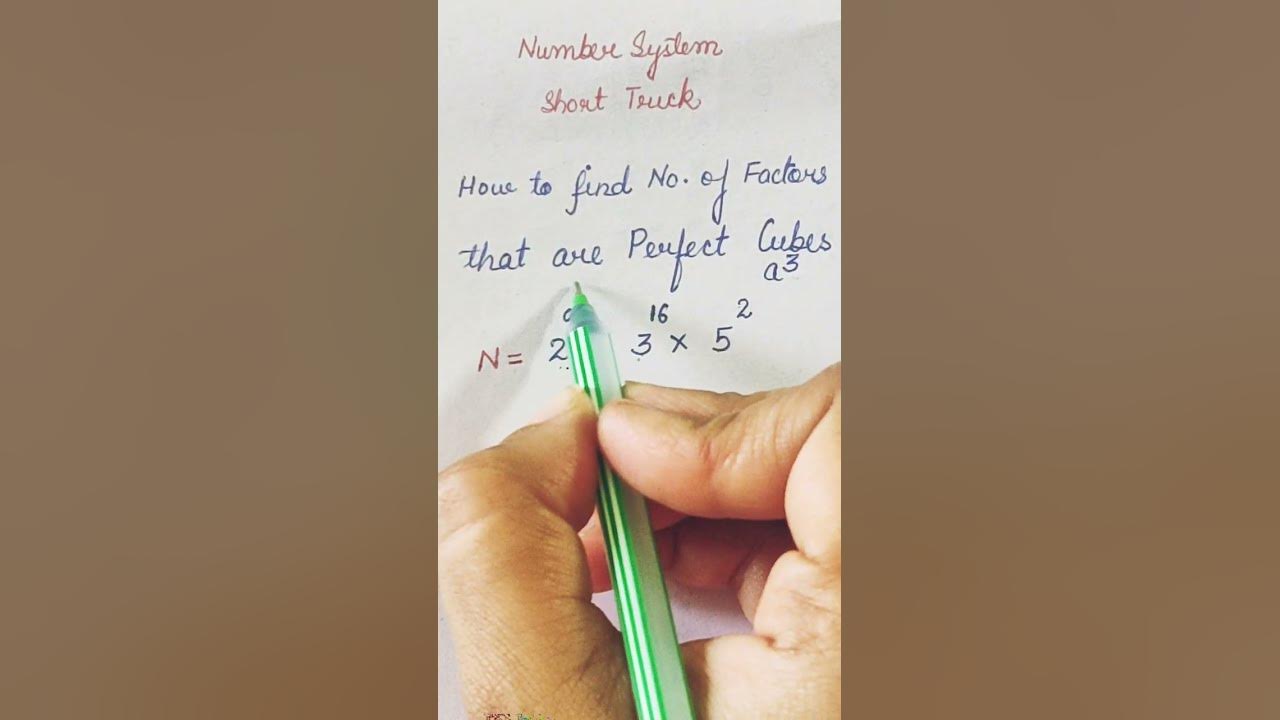 Number System
Short Truck
How to find No. of Factors
that are Perfect Cubes
a³
N = 2 3¹⁶ × 5²